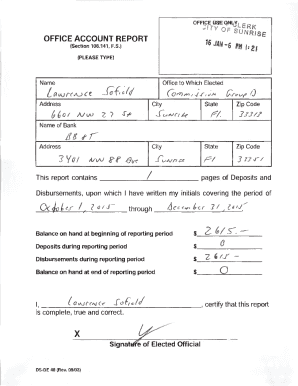 OFFICE USE ONLY CLERK
CITY OF SUNRISE
16 JAN -6 PM 1:21
OFFICE ACCOUNT REPORT
(Section 106.141, F.S.)
(PLEASE TYPE)
Name Office to Which Elected
Lawrence Sofield Commission Group D
Address City State Zip Code
6601 NW 27 St Sunrise Fl. 33313
Name of Bank
BB & T
Address City State Zip Code
3401 NW 88 Ave Sunrise Fl 33351
This report contains 1 pages of Deposits and
Disbursements, upon which I have written my initials covering the period of
October 1, 2015 through December 31, 2015.
Balance on hand at beginning of reporting period $ 2615-
Deposits during reporting period $ 0
Disbursements during reporting period $ 2615-
Balance on hand at end of reporting period $ 0
I, Lawrence Sofield, certify that this report
is complete, true and correct.
X
Signature of Elected Official
DS-DE 48 (Rev. 08/03)